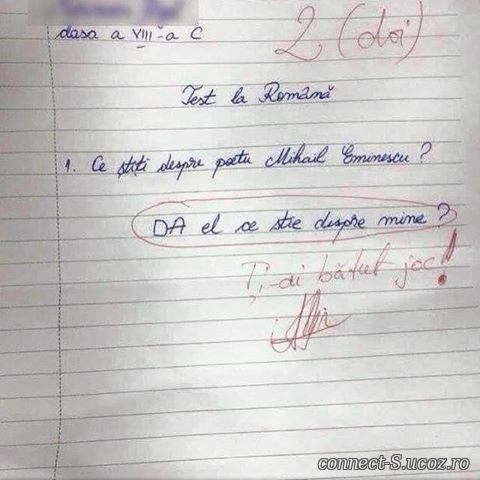 clasa a VIII-a C
2 (doi)
Test la Română
1. Ce știți despre poetu Mihail Eminescu?
DA el ce stie despre mine?
Ți-ai bătut joc!
connect-S.ucoz.ro